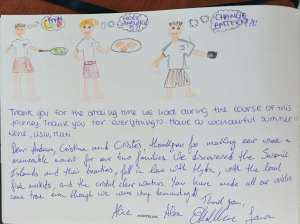 CHANGE
PATTERN!!
Thank you for the amazing time we had during the course of this
journey. Thank you for everything. Have a wonderful summer!
Dear Andrea, Cristina and Cristos, thank you for making our week a
memorable event for our two families. We discovered the Saronic
Islands and their beauties, fell in love with Hydra, with the local
fish markets, and the cristal clear waters. You have made all our wishes
come true even though we were very demanding!
Thank you,
Alice